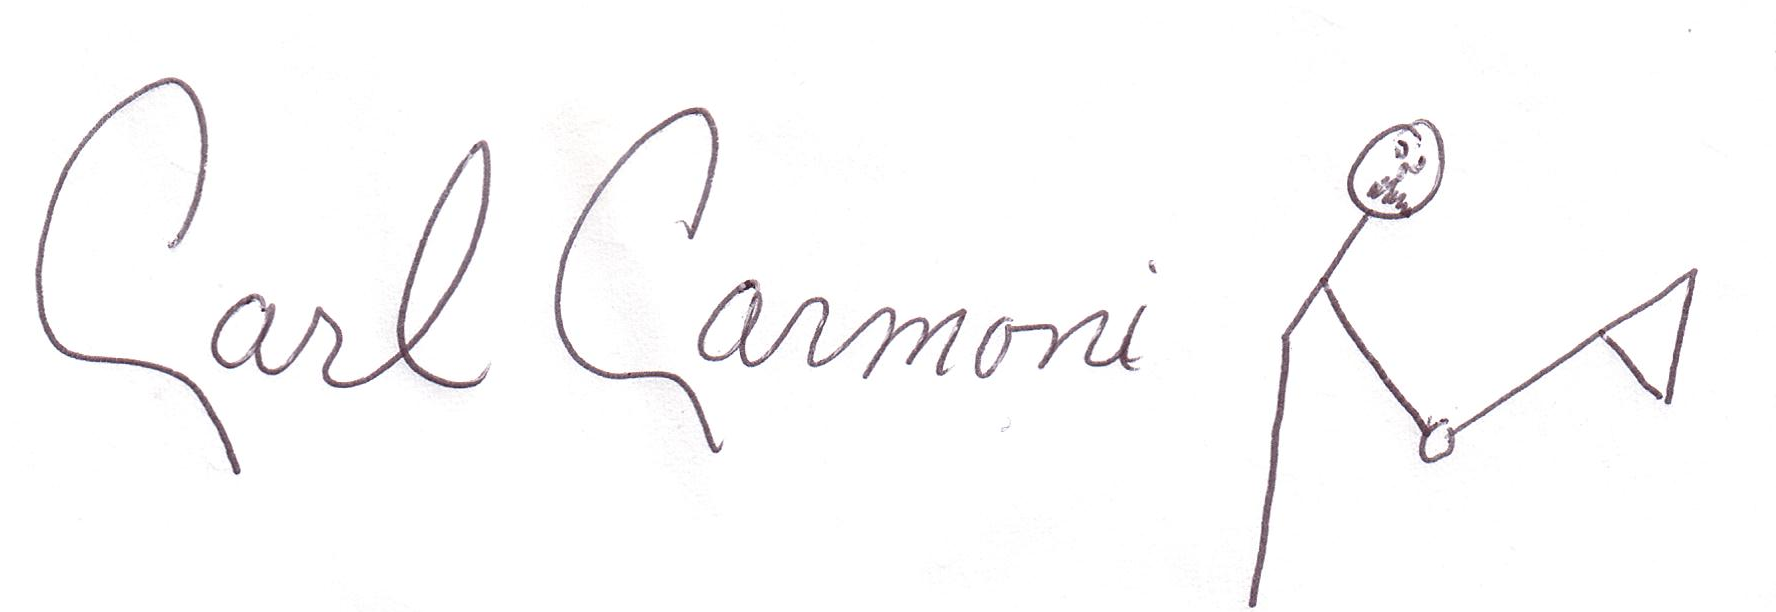 Carl Carmoni